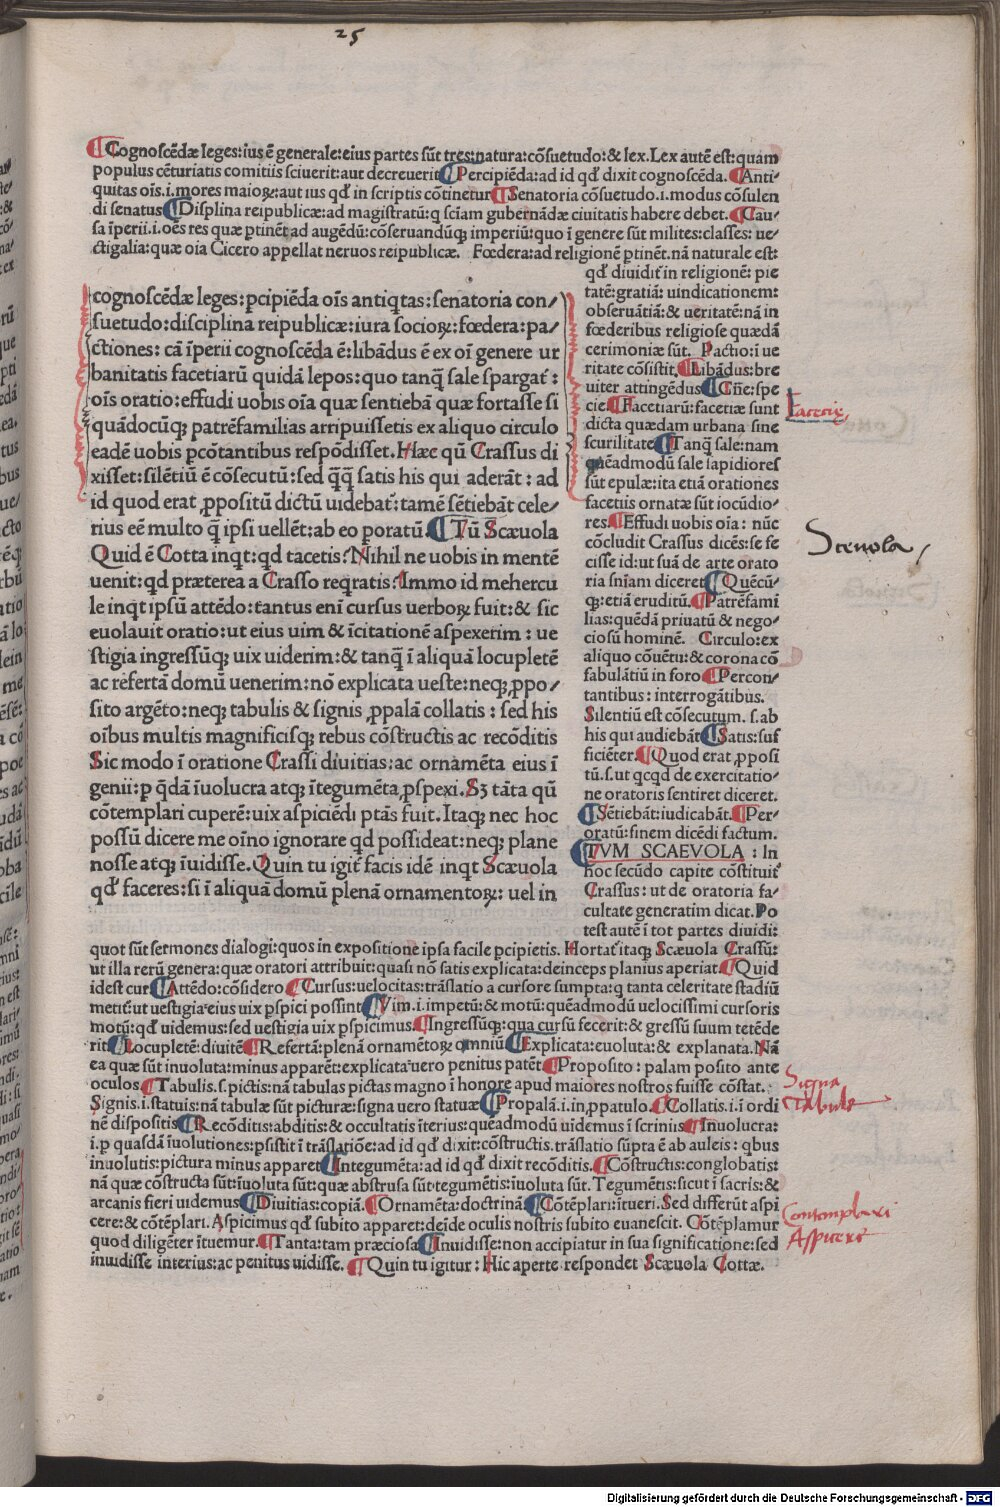 25
¶Cognoscēdæ leges:ius ē generale:eius partes sūt tres:natura:cōsuetudo:& lex.Lex autē est:quam
populus cēturiatis comitiis sciuerit:aut decreuerit¶Percipiēda:ad id qđ dixit cognoscēda.¶Anti-
quitas oīs.i.mores maioꝝ:aut ius qđ in scriptis cōtinetur¶Senatoria cōsuetudo.i.modus cōsulen
di senatus¶Displina reipublicæ:ad magistratū:q sciam gubernādæ ciuitatis habere debet.¶Cau-
sa īperii.i.oēs res quæ ptinēt ad augēdū:cōseruandūqꝫ imperiū:quo ī genere sūt milites:classes: ue-
ctigalia:quæ oia Cicero appellat neruos reipublicæ. Fœdera:ad religionē ptinēt.nā naturale est:
qđ diuidit in religionē: pie
tatē:gratiā: uindicationem:
obseruātiā:& ueritatē:nā in
fœderibus religiose quædā
cerimoniæ sūt. Pactio:ī ue
ritate cōsistit.¶Libādus:bre
uiter attingēdus¶Cñe:spe
cie¶Facetiarū:facetiæ sunt
dicta quædam urbana sine
scurilitate¶Tanq̄ sale:nam
quēadmodū sale sapidiores
sūt epulæ:ita etiā orationes
facetiis ornatæ sūt iocūdio-
res.¶Effudi uobis oīa: nūc
cōcludit Crassus dicēs:se fe
cisse id:ut suā de arte orato
ria sniam diceret¶Quēcū-
qꝫ:etiā eruditū.¶Patrēfami
lias:quēdā priuatū & nego-
ciosū hominē. Circulo:ex
aliquo cōuētu:& corona cō
fabulātiū in foro¶Percon-
tantibus: interrogātibus.
Silentiū est cōsecutum.s.ab
his qui audiebāt¶Satis:suf
ficiēter.¶Quod erat ꝓposi
tū.s.ut qcqd de exercitatio-
ne oratoris sentiret diceret.
¶Sētiebāt:iudicabāt.¶Per-
oratū:finem dicēdi factum.
¶TVM SCAEVOLA : In
hoc secūdo capite cōstituit
Crassus: ut de oratoria fa-
cultate generatim dicat.Po
test autē ī tot partes diuidi:
cognoscēdæ leges:pcipiēda oīs antiqtas:senatoria con-
suetudo:disciplina reipublicæ:iura socioꝝ:fœdera:pa-
ctiones: cā īperii cognoscēda ē:libādus ē ex oī genere ur
banitatis facetiarū quidā lepos:quo tanq̄ sale spargat̄ :
oīs oratio:effudi uobis oīa quæ sentiebā quæ fortasse si
quādocūqꝫ patrēfamilias arripuissetis ex aliquo circulo
eadē uobis pcōtantibus respōdisset.Hæc qū Crassus di
xisset:silētiū ē cōsecutū:sed q̄q̄ satis his qui aderāt: ad
id quod erat ꝓpositū dictū uidebat̄:tamē sētiebāt cele-
rius eē multo q̄ ipsi uellēt:ab eo poratū.¶Tū Scæuola
Quid ē Cotta inqt:qd tacetis?Nihil ne uobis in mentē
uenit:qd præterea a Crasso reqratis?Immo id mehercu
le inqt ipsū attēdo:tantus enī cursus uerboꝝ fuit:& sic
euolauit oratio:ut eius uim & īcitationē aspexerim : ue
stigia ingressūqꝫ uix uiderim:& tanq̄ ī aliquā locupletē
ac refertā domū uenerim:nō explicata ueste:neqꝫ ꝓpo-
sito argēto:neqꝫ tabulis & signis ꝓpalā collatis : sed his
oībus multis magnificisqꝫ rebus cōstructis ac recōditis
Sic modo ī oratione Crassi diuitias:ac ornamēta eius ī
genii: p q̄dā īuolucra atqꝫ ītegumēta ꝓspexi.Sꝫ tāta qū
cōtemplari cuperē:uix aspiciēdi ptās fuit.Itaqꝫ nec hoc
possū dicere me oīno ignorare qd possideat:neqꝫ plane
nosse atqꝫ īuidisse.Quin tu igit̄ facis idē inqt Scæuola
qđ faceres:si ī aliquā domū plenā ornamentoꝝ: uel in
quot sūt sermones dialogi:quos in expositione ipsa facile pcipietis. Hortat̄ itaqꝫ Scæuola Crassū:
ut illa rerū genera:quæ oratori attribuit:quasi nō satis explicata:deinceps planius aperiat.¶Quid
id est cur¶Attēdo:cōsidero¶Cursus:uelocitas:trāslatio a cursore sumpta:q tanta celeritate stadiū
metit̄:ut uestigia eius uix pspici possint¶Vim.i.impetū:& motū:quēadmodū uelocissimi cursoris
motū:qđ uidemus:sed uestigia uix pspicimus.¶Ingressūqꝫ:qua cursū fecerit:& gressū suum tetēde
rit¶Locupletē:diuitē¶Refertā:plenā ornamētoꝝ omniū¶Explicata:euoluta:& explanata.Nā
ea quæ sūt inuoluta:minus apparēt:explicata uero penitus patēt¶Proposito : palam posito ante
oculos¶Tabulis.s.pictis:nā tabulas pictas magno ī honore apud maiores nostros fuisse cōstat.
Signis.i.statuis:nā tabulæ sūt picturæ:signa uero statuæ¶Propalā.i.in ꝓpatulo.¶Collatis.i.ī ordi
nē dispositis¶Recōditis:abditis:& occultatis īterius:quēadmodū uidemus ī scriniis¶Inuolucra:
i.p quasdā īuolutiones:psistit ī trāslatiōe:ad id qđ dixit:cōstructis.trāslatio sūpta ē ab auleis: qbus
inuolutis:pictura minus apparet¶Integumēta:ad id qđ dixit recōditis.¶Cōstructis:conglobatis:
nā quæ cōstructa sūt:īuoluta sūt:quæ abstrusa sūt:tegumētis:īuoluta sūt.Tegumētis:sicut ī sacris:&
arcanis fieri uidemus¶Diuitias:copiā.¶Ornamēta:doctrinā.¶Cōtēplari:ītueri.Sed differūt aspi
cere:& cōtēplari.Aspicimus qđ subito apparet:deīde oculis nostris subito euanescit. Cōtēplamur
quod diligēter ītuemur.¶Tanta:tam præciosa¶Inuidisse:non accipiatur in sua significatione:sed
inuidisse interius:ac penitus uidisse.¶Quin tu igitur : Hic aperte respondet Scæuola Cottæ.
Facetie
Sceuola
Signa
Tabule
Contemplari
Aspicere
Digitalisierung gefördert durch die Deutsche Forschungsgemeinschaft - DFG